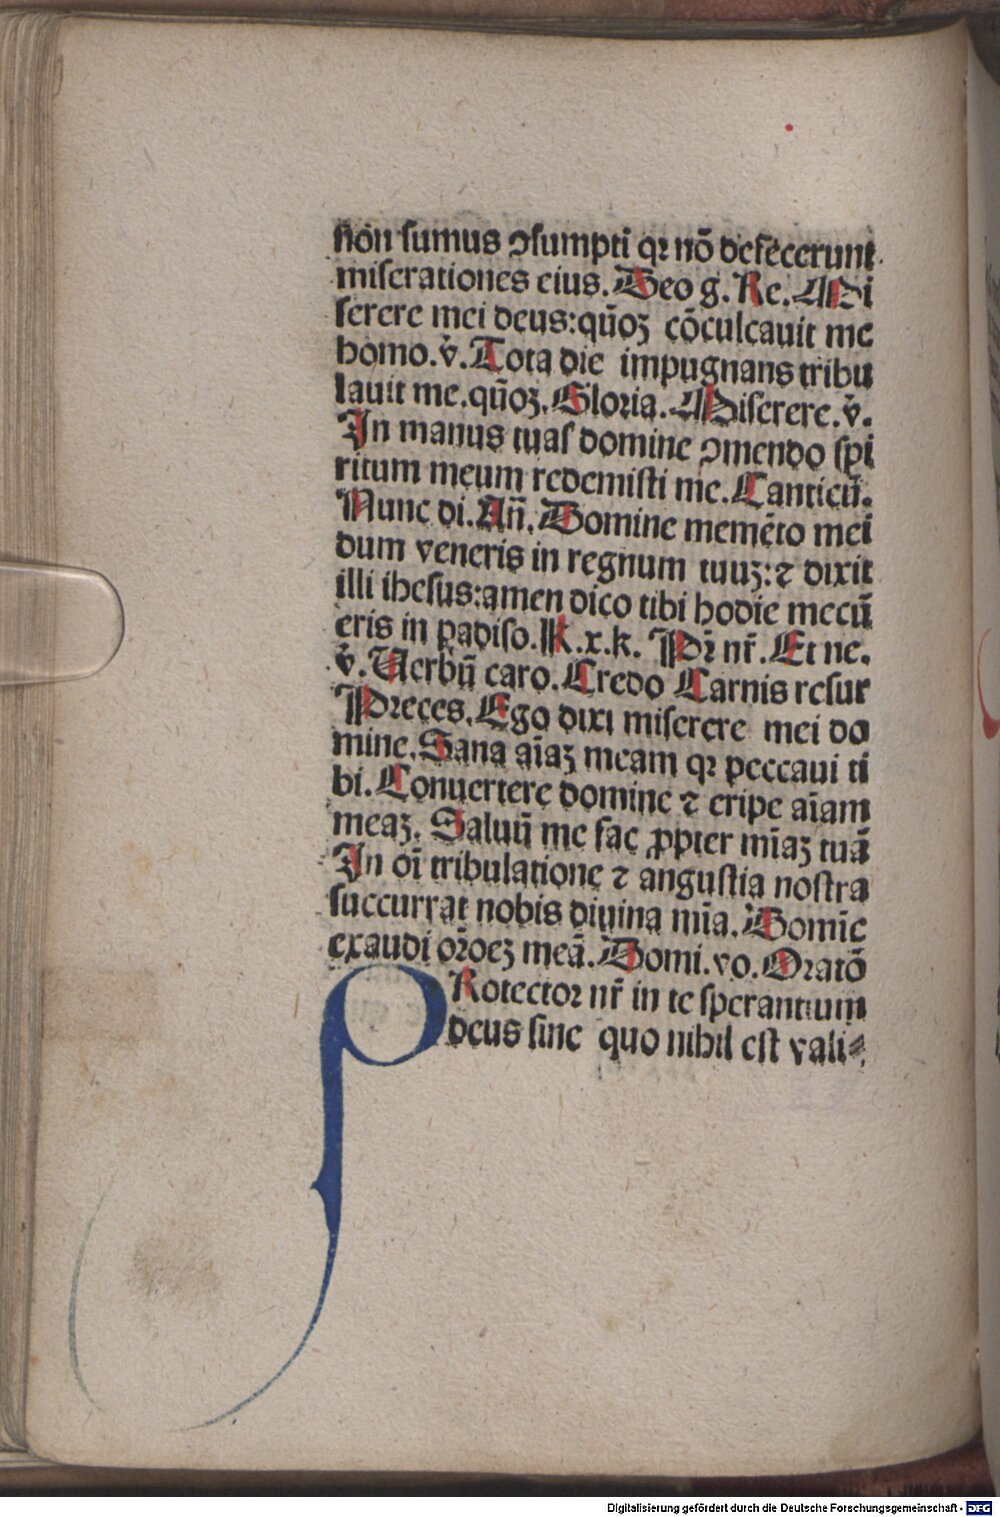 non sumus ↄsumpti qꝛ nō defecerunt
miserationes eius. Deo g. Re. Mi
serere mei deus: qm̄oꝫ cōculcauit me
homo. v̄. Tota die impugnans tribu
lauit me. qm̄oꝫ. Gloria. Miserere. v̄.
In manus tuas domine ↄmendo spi
ritum meum redemisti me. Canticū.
Nunc di. An̄. Domine memēto mei
dum veneris in regnum tuuꝫ: ⁊ dixit
illi ihesus: amen dico tibi hodie mecū
eris in ꝑadiso. K. x. k. Pr̄ nr̄. Et ne.
v̄. Uerbū caro. Credo Carnis resur
Preces. Ego dixi miserere mei do
mine. Sana aīaꝫ meam qꝛ peccaui ti
bi. Conuertere domine ⁊ eripe aīam
meaꝫ. Saluū me fac ꝓpter mīaꝫ tuā
In oī tribulatione ⁊ angustia nostra
succurrat nobis diuina mīa. Domīe
exaudi or̄oeꝫ meā. Domi. vo. Oratō
PRotector nr̄ in te sperantium
deus sine quo nihil est vali⸗
Digitalisierung gefördert durch die Deutsche Forschungsgemeinschaft - DFG